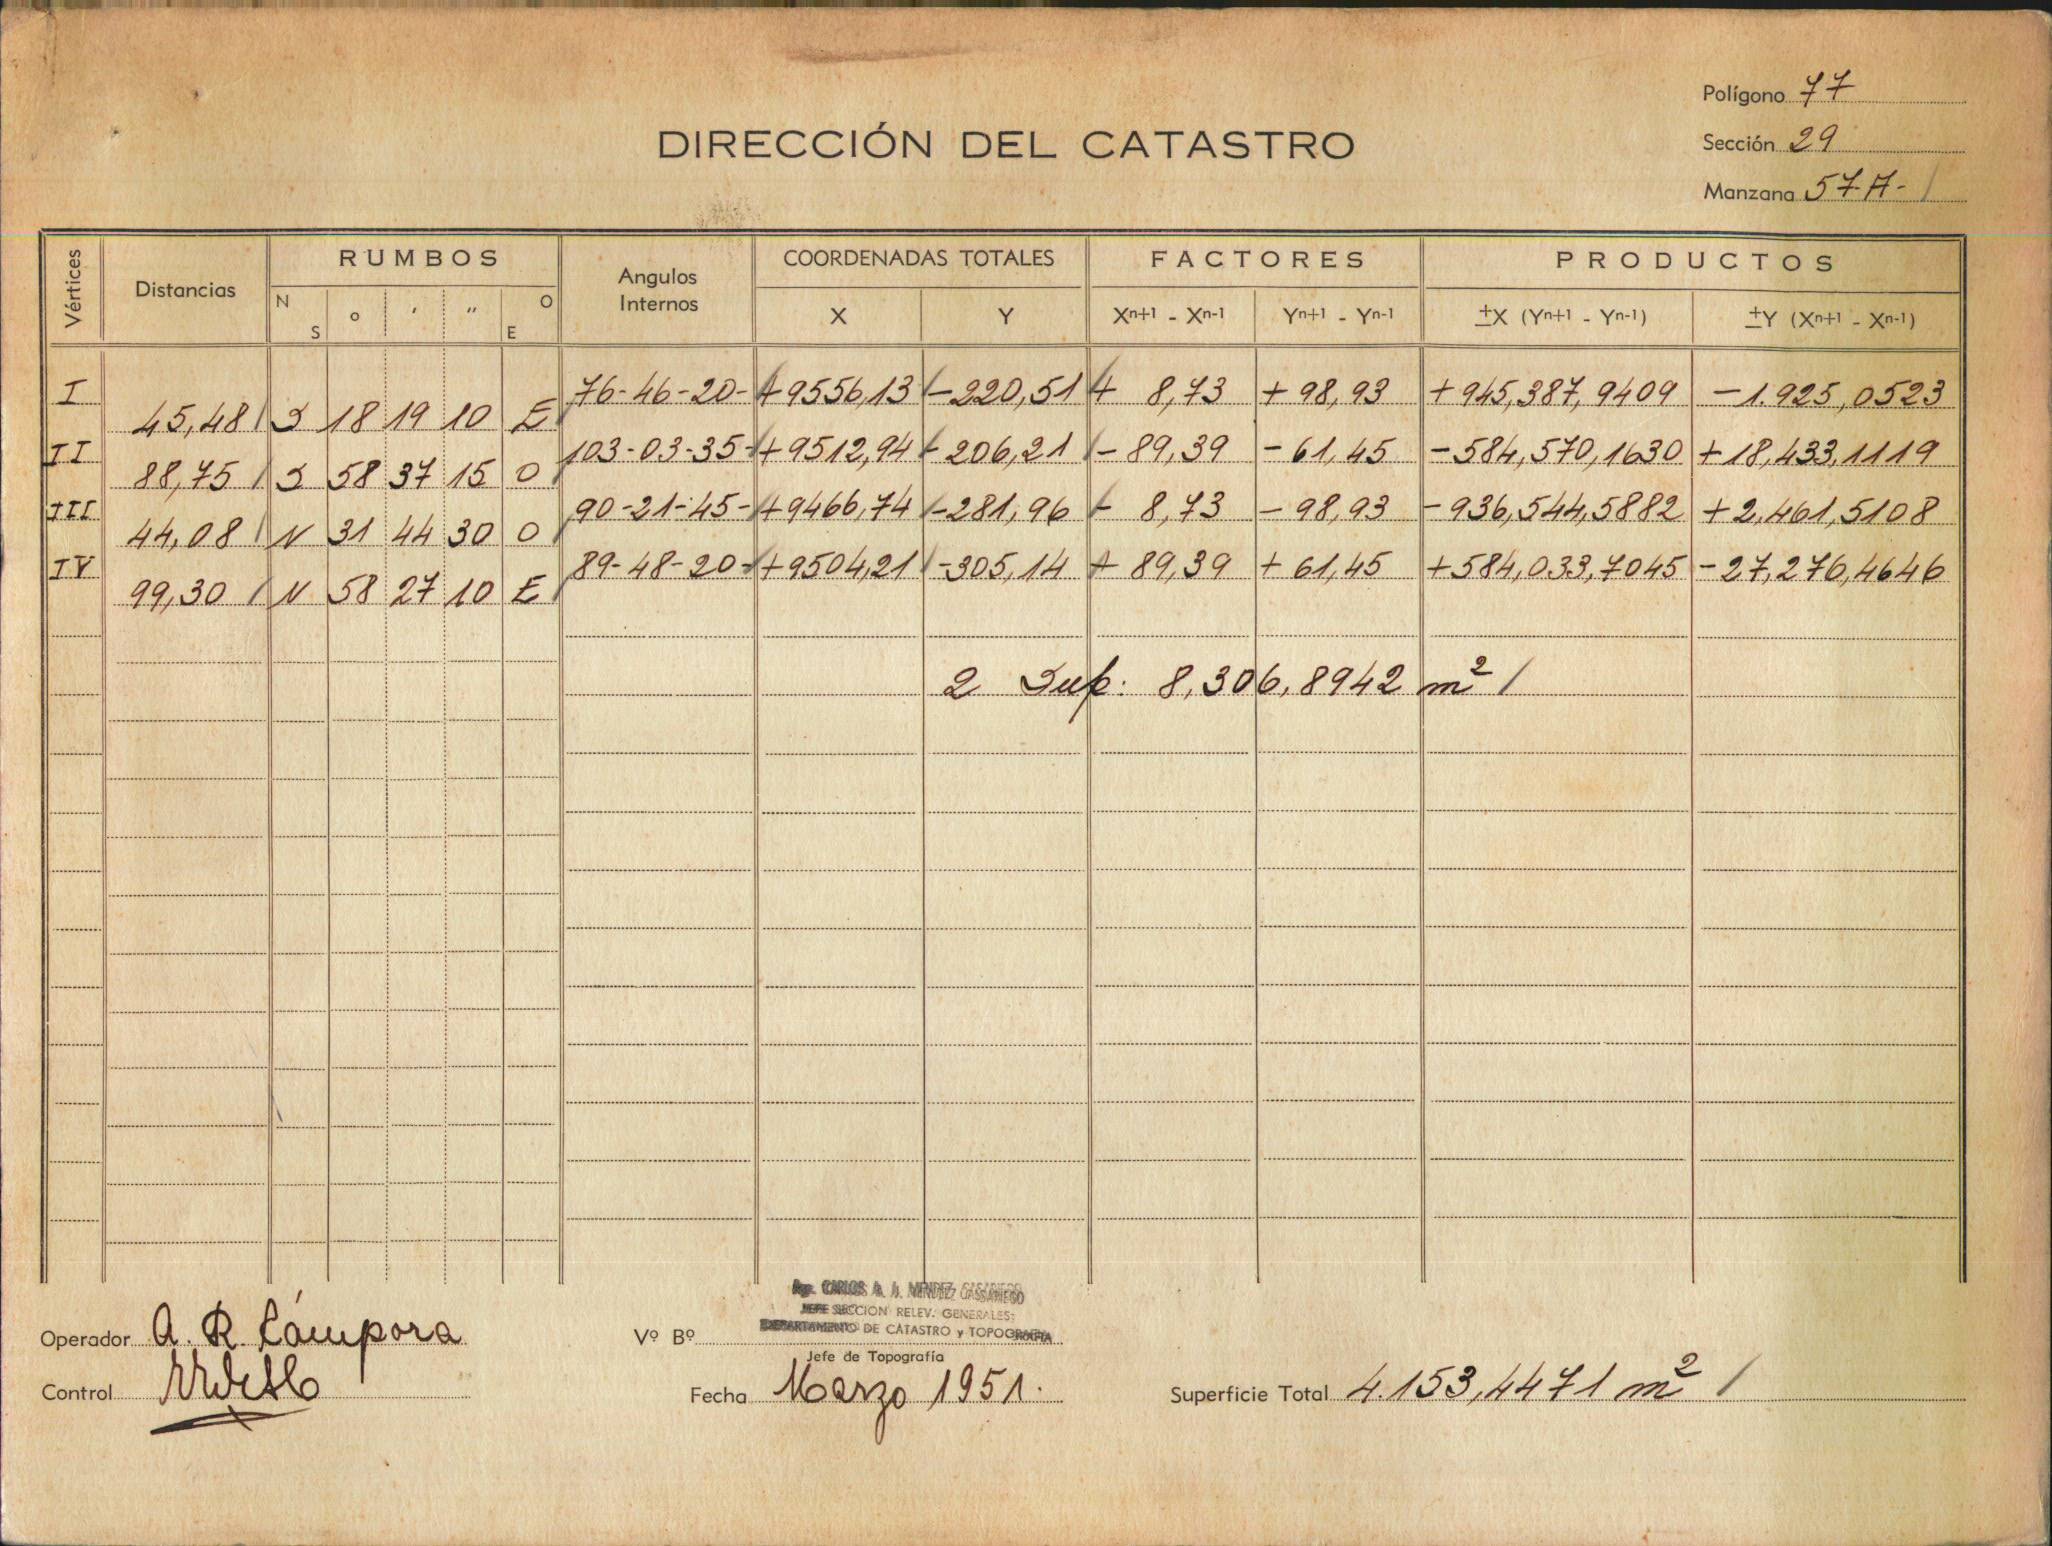 Polígono 77
DIRECCIÓN DEL CATASTRO
Sección 29
Manzana 57-A-
Vértices Distancias RUMBOS Angulos Internos COORDENADAS TOTALES FACTORES PRODUCTOS
N S ° ′ ″ O E X Y Xn+1 - Xn-1 Yn+1 - Yn-1 ±X (Yn+1 - Yn-1) ±Y (Xn+1 - Xn-1)
I 76-46-20- +9556,13 -220,51 + 8,73 +98,93 +945,387,9409 -1.925,0523
45,48 S 18 19 10 E
II 103-03-35- +9512,94 -206,21 -89,39 -61,45 -584,570,1630 +18,433,1119
88,75 S 58 37 15 O
III 90-21-45- +9466,74 -281,96 - 8,73 -98,93 -936,544,5882 +2,461,5108
44,08 N 31 44 30 O
IV 89-48-20- +9504,21 -305,14 + 89,39 +61,45 +584,033,7045 -27,276,4646
99,30 N 58 27 10 E
2 Sup: 8,306,8942 m²
Agr. CARLOS A. A. MENDEZ CASARIEGO
JEFE SECCION RELEV. GENERALES
DEPARTAMENTO DE CATASTRO y TOPOGRAFIA
Operador A. R. Cámpora
Vº Bº
Jefe de Topografía
Control
Fecha Marzo 1951.
Superficie Total 4.153,4471 m²